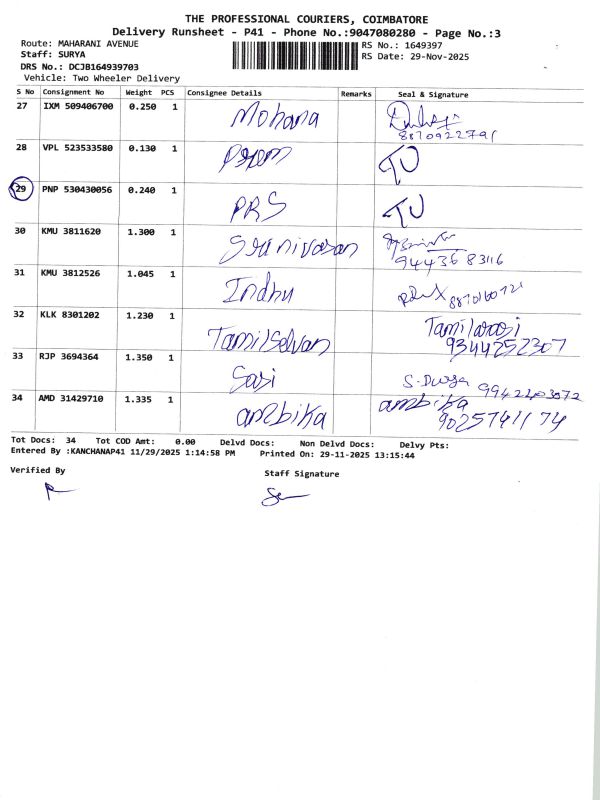 THE PROFESSIONAL COURIERS, COIMBATORE
Delivery Runsheet - P41 - Phone No.:9047080280 - Page No.:3
Route: MAHARANI AVENUE
Staff: SURYA
DRS No.: DCJB164939703
Vehicle: Two Wheeler Delivery
RS No.: 1649397
RS Date: 29-Nov-2025
S No Consignment No Weight PCS Consignee Details Remarks Seal & Signature
27 IXM 509406700 0.250 1 Mohana
8870922791
28 VPL 523533580 0.130 1
29 PNP 530430056 0.240 1 PRS
30 KMU 3811620 1.300 1 Srinivasan
94436 83116
31 KMU 3812526 1.045 1 Indhu
32 KLK 8301202 1.230 1 Tamilselvan Tamilarasi
9344252307
33 RJP 3694364 1.350 1 Sasi
34 AMD 31429710 1.335 1 ambika ambika
9025741174
Tot Docs: 34 Tot COD Amt: 0.00 Delvd Docs: Non Delvd Docs: Delvy Pts:
Entered By :KANCHANAP41 11/29/2025 1:14:58 PM Printed On: 29-11-2025 13:15:44
Verified By Staff Signature